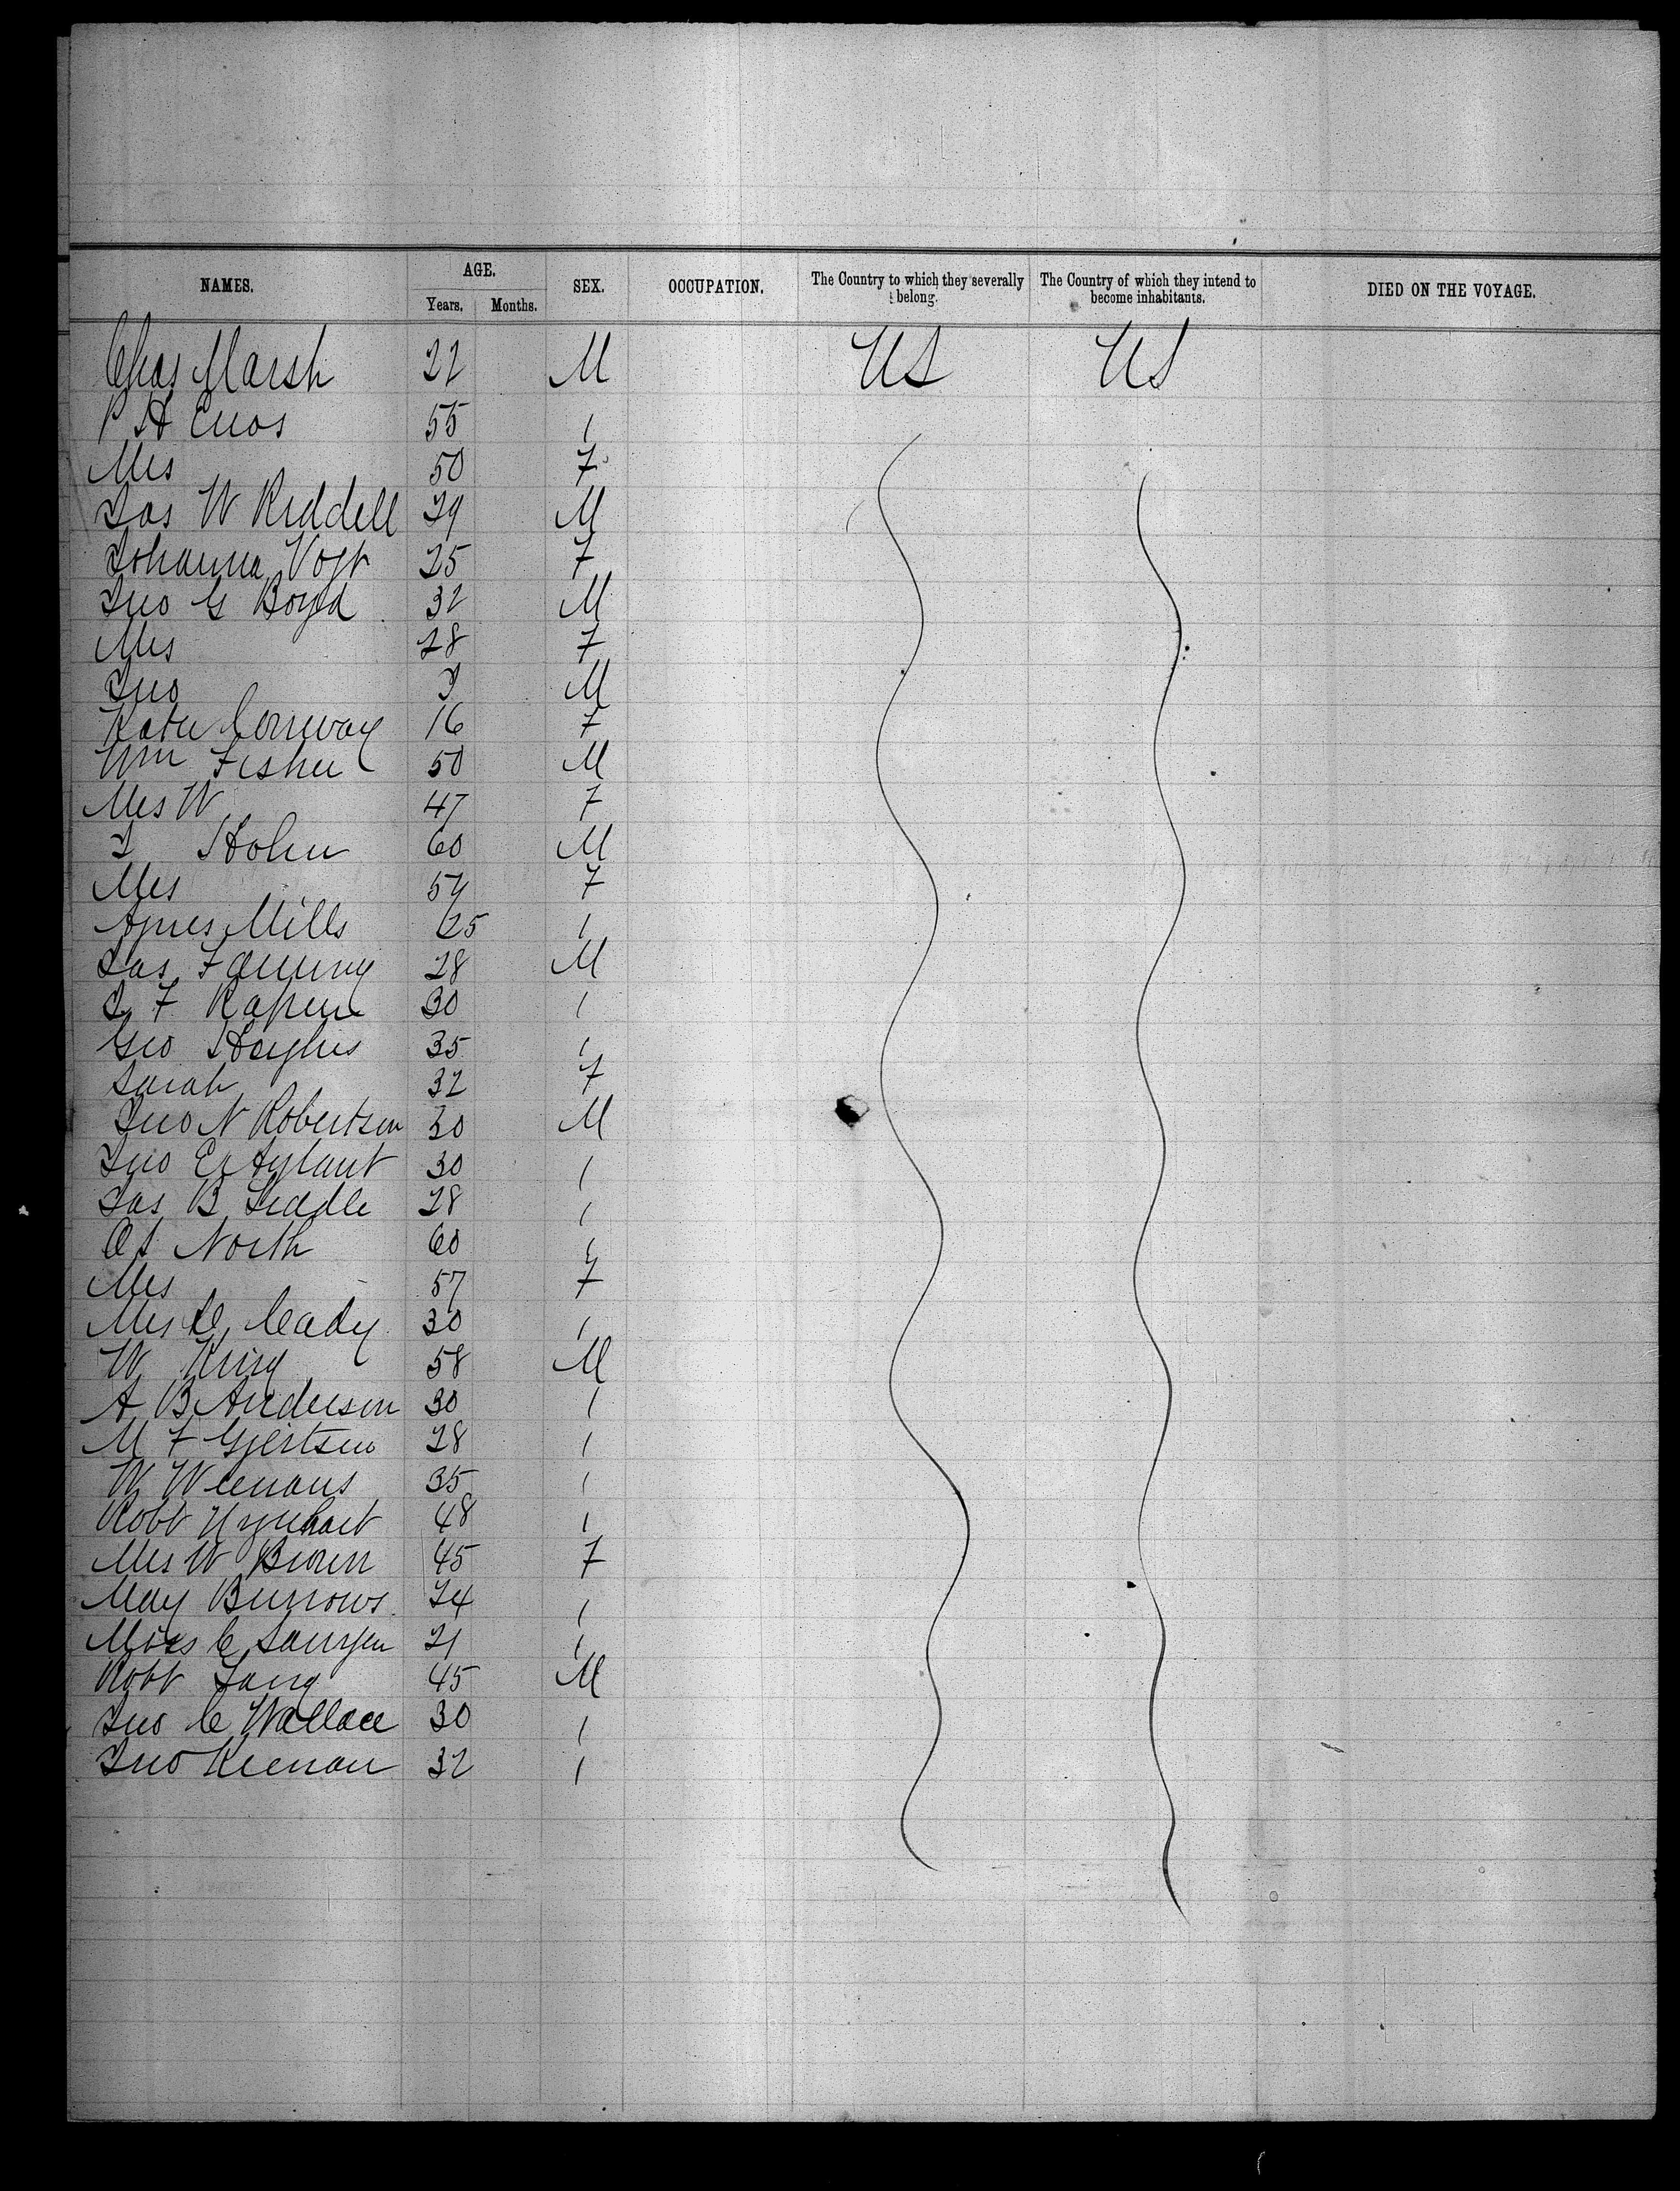 NAMES. AGE. SEX. OCCUPATION. The Country to which they severally belong. The Country of which they intend to become inhabitants. DIED ON THE VOYAGE.
Years. Months.
Chas Marsh 22 M US US
P H Enos 55 1
Mrs 50 F
Jas W Riddell 29 M
Johanna Vogt 25 F
Jno G Boyd 32 M
Mrs 28 F
Jno M
Kate Conway 16 F
Wm Fisher 50 M
Mrs W 47 F
J Hohn 60 M
Mrs 54 F
Agnes Mills 25 1
Jas Fanning 28 M
J F 30 1
Geo Hughes 35 1
Sarah 32 F
Jno N Robertson 30 M
Jno 30 1
Jas B Liddle 28 1
North 60
Mrs 57 F
Mrs Cady 30 1
W King 58 M
A B Anderson 30 1
M F Gjertsen 28 1
W 35 1
Robt Urquhart 48 1
Mrs W Brown 45 F
May Burrows 24 1
Miss C 21 1
Robt Lang 45 M
Jno C Wallace 30 1
Jno Keenan 32 1